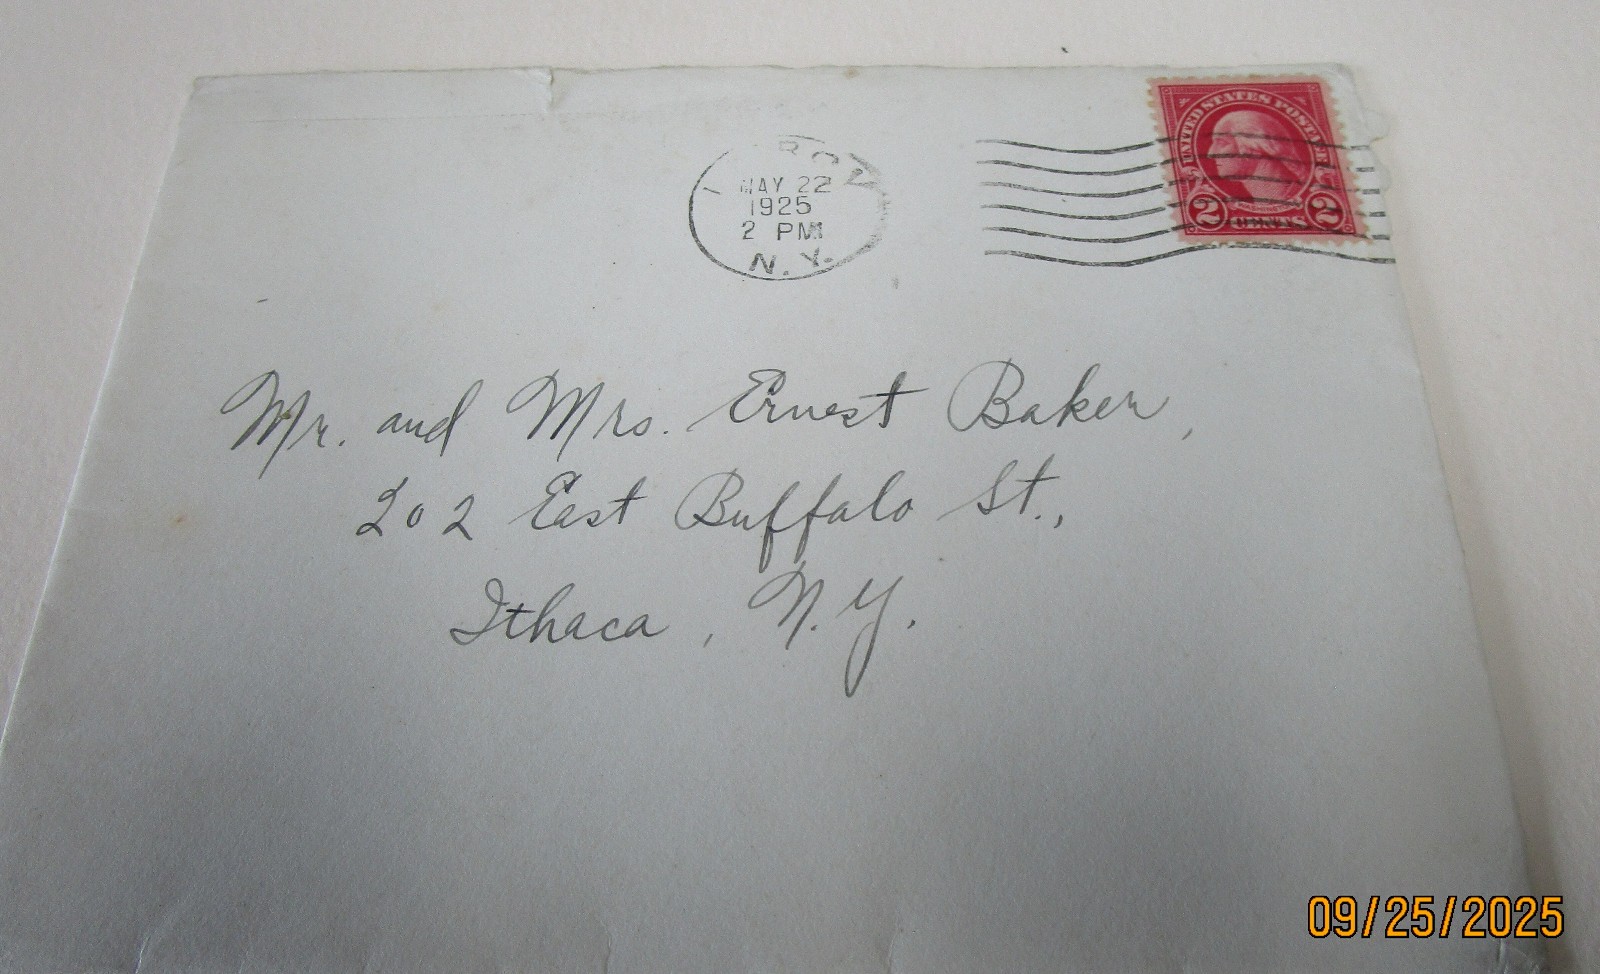 MAY 22
1925
2 PM
N.Y.
UNITED STATES POSTAGE
WASHINGTON
2 CENTS 2
Mr. and Mrs. Ernest Baker,
202 East Buffalo St.,
Ithaca, N.Y.
09/25/2025